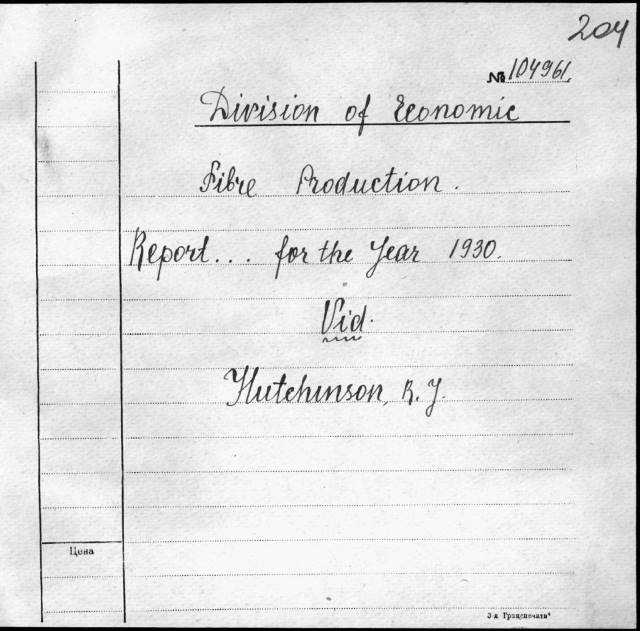 204
№ 104961.
Division of Economic
Fibre Production.
Report... for the Year 1930.
Vid.
Hutchinson, R. J.
Цена
3-я Транспечати"